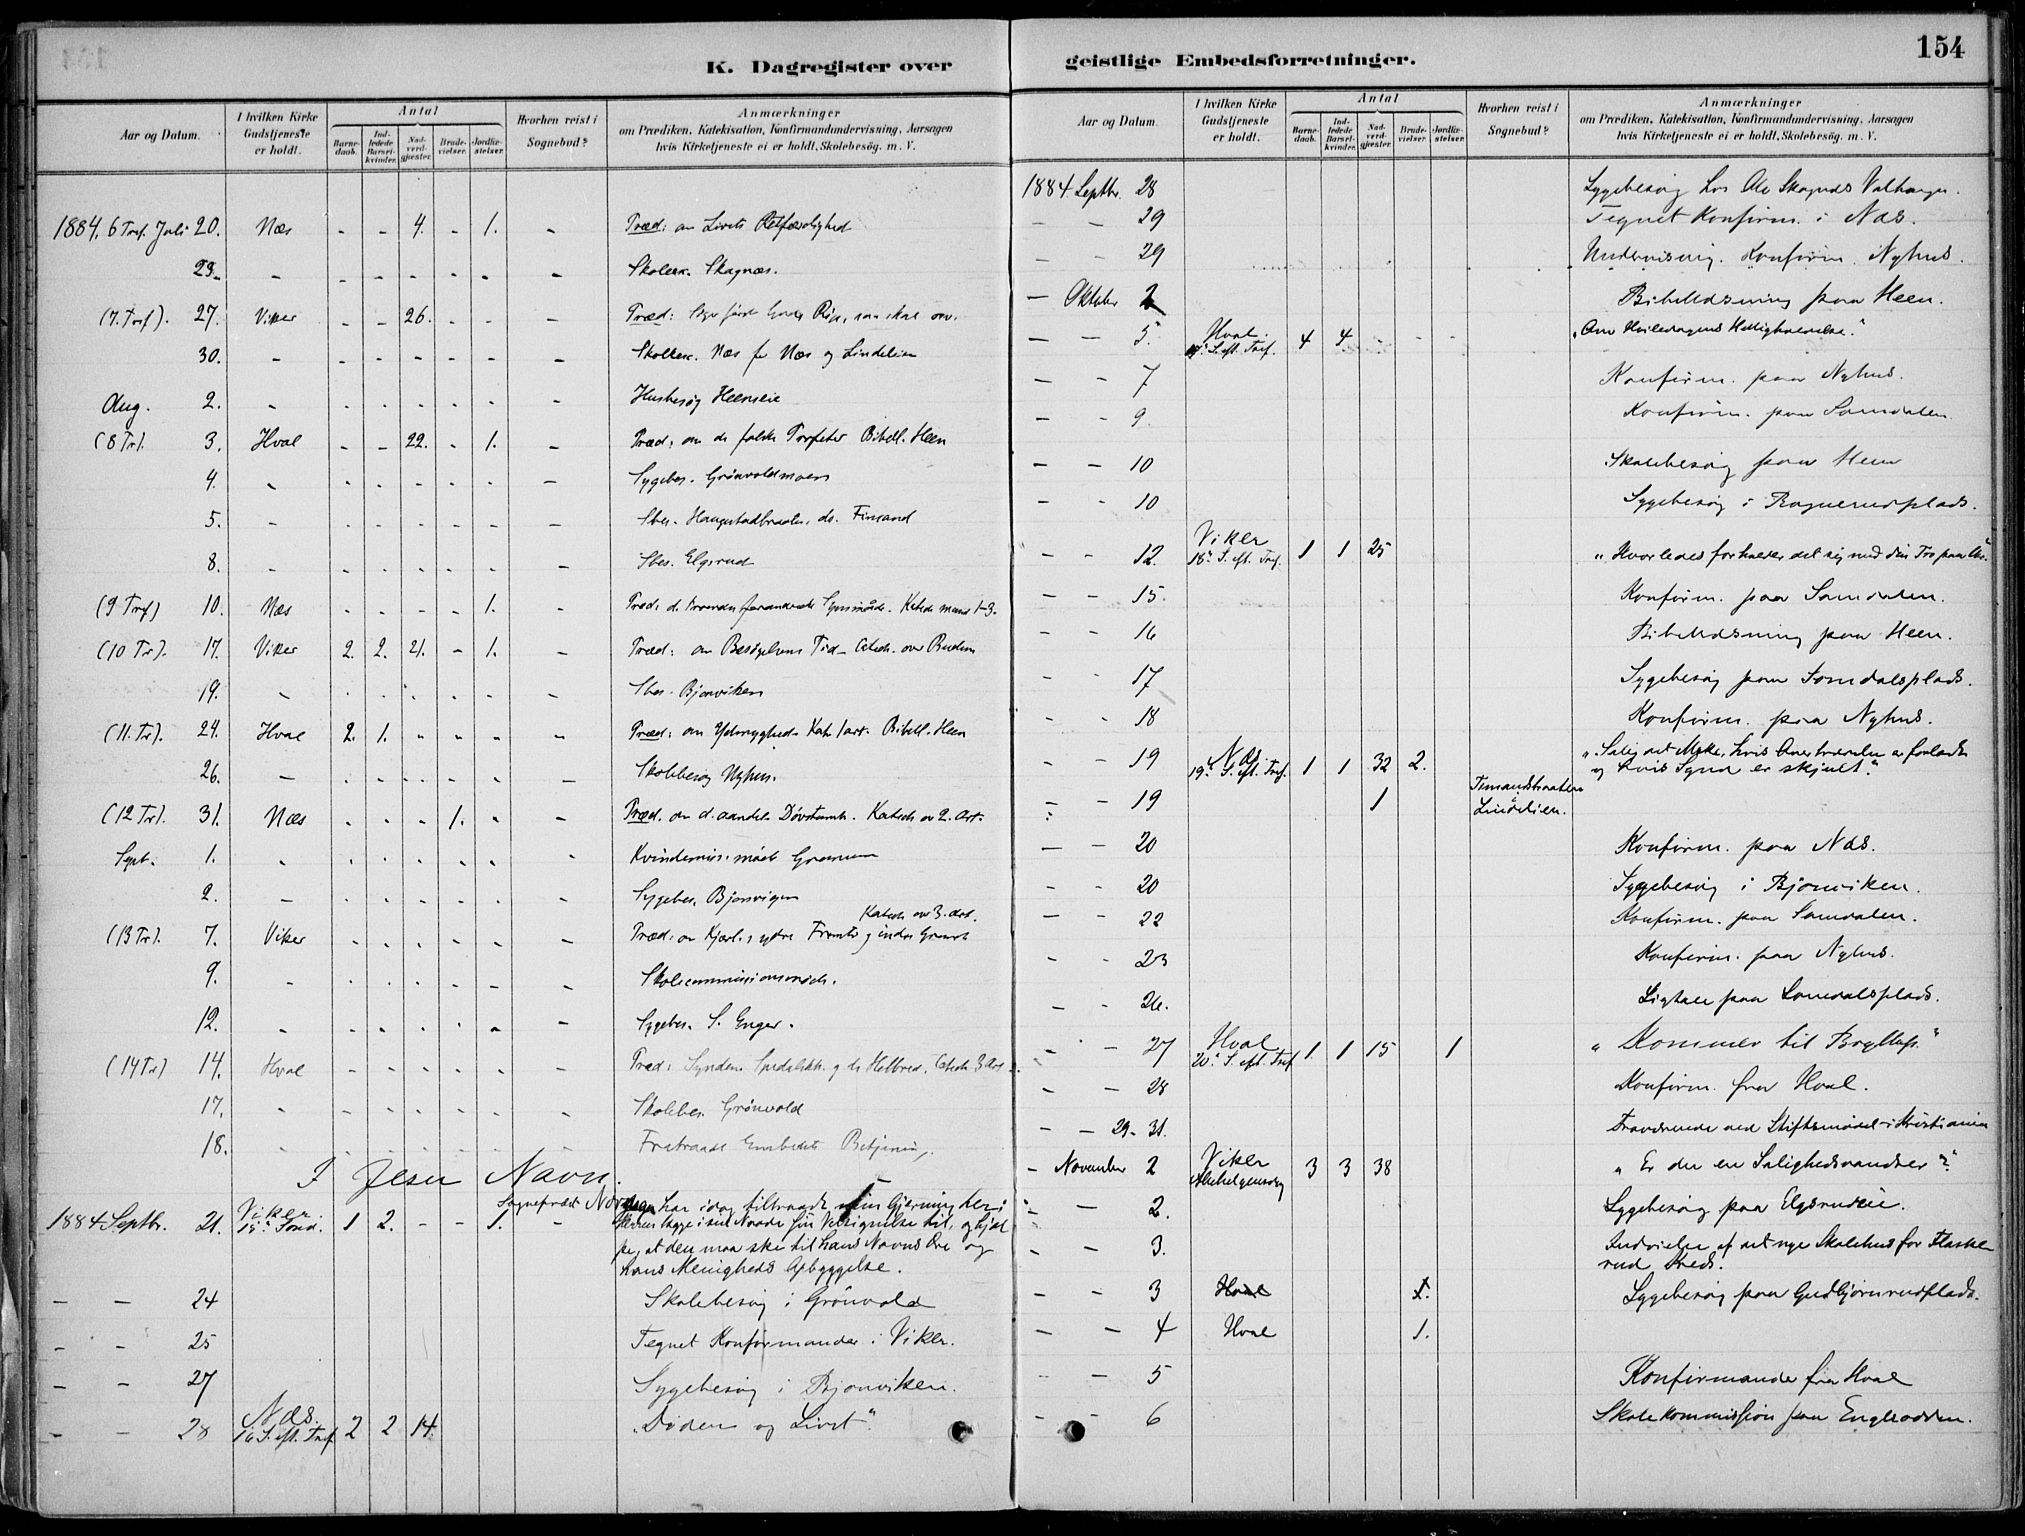 154
K. Dagregister over geistlige Embedsforretninger.
Aar og Datum.
I hvilken Kirke Gudstjeneste er holdt.
Antal
Barnedaab.
Indledede Barselkvinder.
Nadverdgjæster.
Brudevielser.
Jordfæstelser.
Hvorhen reist i Sognebud?
Anmærkninger
om Prædiken, Katekisation, Konfirmandundervisning, Aarsagen
hvis Kirketjeneste ei er holdt, Skolebesög. m. V.
1884. 6 Tref. Juli 20. Næs - - 4. - 1. - Præd: om Livets Retfærdighed
23. - - - - - - - Skolex. Skagnæs.
(7. Tref). 27. Viker - - 26. - - - Præd:
30. - - - - - - - Skolex. Næs for Næs og Lindelien
Aug. 2. - - - - - - - Husbesøg Heenseie
(8 Tr). 3. Hval - - 22. - 1. - Præd: om de falske Profeter Bibell. Heen
4. - - - - - - - Sygebes. Grönvoldmoen
5. - - - - - - - Sbes. Haugstadbraaten, do. Finsand
8. - - - - - - - Sbes. Elgsrud
(9 Tref) 10. Næs - - - - 1. - Præd:
(10 Tr). 17. Viker 2. 2. 21. - 1. - Præd: om Besøgelsens Tid - Catech. over Budene
19. - - - - - - - Sbes. Bjonviken
(11. Tr). 24. Hval 2. 1. - - - - Præd: om Ydmyghed. Kat. 1 art. Bibell. Heen
26. - - - - - - - Skolebesøg Nyhus.
(12 Tr). 31. Næs - - - 1. - - Præd. om d. aandel. Døvstumh. Katech. ov 2. Art.
Sept. 1. - - - - - - - Kvindemis. møde
2. - - - - - - - Sygebes. Bjonvigen
Katech ov 3. Art.
(13 Tr). 7. Viker - - - - - - Præd: om Kjærl. s ydre Fremtr og indre Grund
9. - - - - - - - Skolecommissionsmøde.
12. - - - - - - - Sygebes. S. Enger.
(14 Tr) 14. Hval - - - - - - Præd: Syndens Spedalskh. og ds Helbred. Catech. 3 Art
17. - - - - - - - Skolebes. Grönvold
18. - - Fratraadt Embedets Betjening.
I Jesu Navn.
1884 Septbr. 21. Viker 15de Sönd. 1 2. - - 1. - har idag tiltraadt min Gjerning her i
Herren lægge i sin Naade sin Velsignelse til, og hjæl
pe, at den maa ske til hans Navns Ære og
hans Menigheds Opbyggelse.
- - 24 Skolebesøg i Grönvold
- - 25 Tegnet Konfirmander i Viker.
- - 27 Sygebesøg i Bjonviken.
- - 28 Næs. 16 S. eft. Tref. 2 2 14. "Döden og Livet".
1884 Septbr. 28 Sygebesøg hos Ole Skagnæs Valhaugen.
- - 29 Tegnet Konfirm. i Næs.
- - 29 Undervisning. Konfirm. Nyhus.
- Oktober 2 Bibellæsning paa Heen.
- - 5. Hval. 17de S. eft. Tref. 4 4 - - - "Om Hviledagens Helligholdelse."
- - 7 Konfirm. paa Nyhus.
- - 9. Konfirm. paa Somdalen
- - 10 Skolebesøg paa Heen
- - 10 Sygebesøg i Rognerudplads.
- - 12. Viker 18de S. eft. Tref. 1 1 25 "Hvorledes forholder det sig med din Tro paa Chr."
- - 15. Konfirm. paa Somdalen.
- - 16 Bibellæsning paa Heen.
- - 17 Sygebesøg paa Somdalsplads.
- - 18 Konfirm. paa Nyhus.
- - 19 Næs 19de S. eft. Tref. 1 1 32 2. "Salig det Mske, hvis Overtrædelse er forladt
og hvis Synd er skjult."
- - 19 1 Lindelien.
- - 20 Konfirm. paa Næs.
- - 20 Sygebesøg i Bjonviken.
- - 22 Konfirm. paa Somdalen.
- - 23 Konfirm. paa Nyhus.
- - 26. Ligtale paa Somdalsplads.
- - 27 Hval 20de S. eft. Tref 1. 1 15 1 "Kommer til Bryllup."
- - 28 Konfirm. fra Hval.
- - 29-31. Fraværende ved Stiftsmødet i Kristiania
- November 2 Viker Allehelgensdag 3 3 38 "Er du en Salighedsvandrer?"
- - 2. Sygebesøg paa Elgsrudeie.
- - 3. Indvielse af det nye Skolehus for Flaske
rud Kreds.
- - 3 Hval 1. Sygebesøg paa Gudbjørnrudplads.
- - 4 Hval 1.
- - 5 Konfirmander fra Hval
- - 6 Skolekommission paa Engleodden.